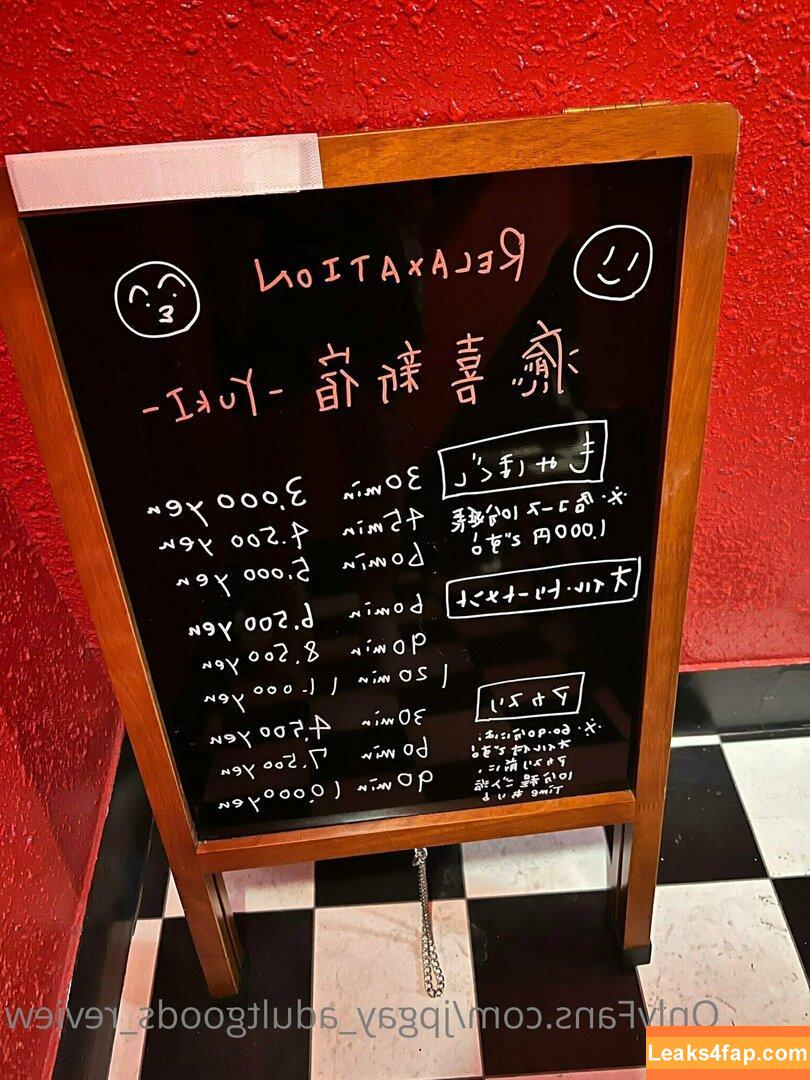 RELAXATION
癒喜新宿 -YUKI-
もみほぐし
30min 3,000 yen
45min 4,500 yen
60min 5,000 yen
※.各コース10分延長
1,000円です!
オイル・トリートメント
60min 6,500 yen
90min 8,500 yen
120min 11,000 yen
アカスリ
30min 4,500 yen
60min 7,500 yen
90min 10,000 yen
※.60.90分には、
オイル付です!
アカスリ前に、
10分程ご入浴
Timeあり♪
OnlyFans.com/jpgay_adultgoods_review
Leaks4fap.com